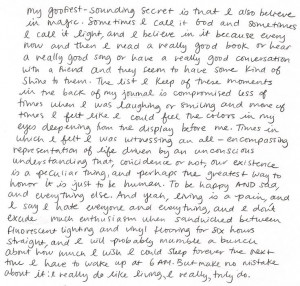 my goofiest-sounding secret is that I also believe
in magic. Sometimes I call it God and sometimes
I call it light, and I believe in it because every
now and then I read a really good book or hear
a really good song or have a really good conversation
with a friend and they seem to have some kind of
shine to them. The list I keep of these moments
in the back of my journal is compromised less of
times when I was laughing or smiling and more of
times I felt like I could feel the colors in my
eyes deepening from the display before me. Times in
which I felt I was witnessing an all-encompassing
representation of life driven by an unconscious
understanding that, coincidence or not, our existence
is a peculiar thing, and perhaps the greatest way to
honor it is just to be human. To be happy AND sad,
and everything else. And yeah, living is a pain, and
I say I hate everyone and everything, and I don't
exude much enthusiasm when sandwiched between
fluorescent lighting and vinyl flooring for six hours
straight, and I will probably mumble a bunch
about how much I wish I could sleep forever the next
time I have to wake up at 6 AM. But make no mistake
about it: I really do like living. I really, truly do.